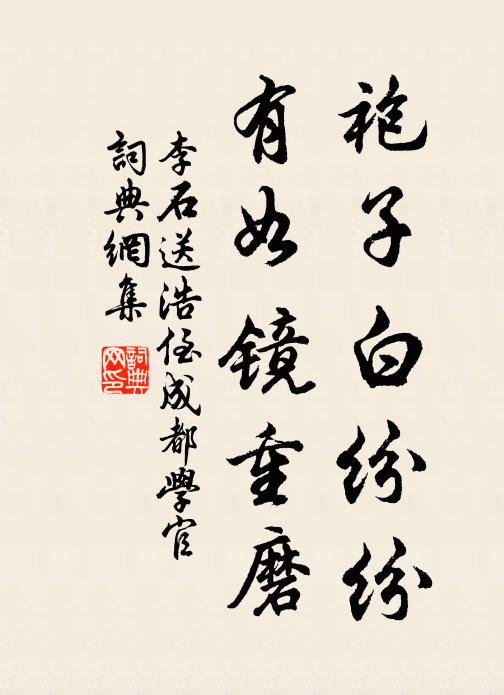 袍子白纷纷
有如镜重磨
李石送浩侄成都學官
詞典網集
詞典
网印